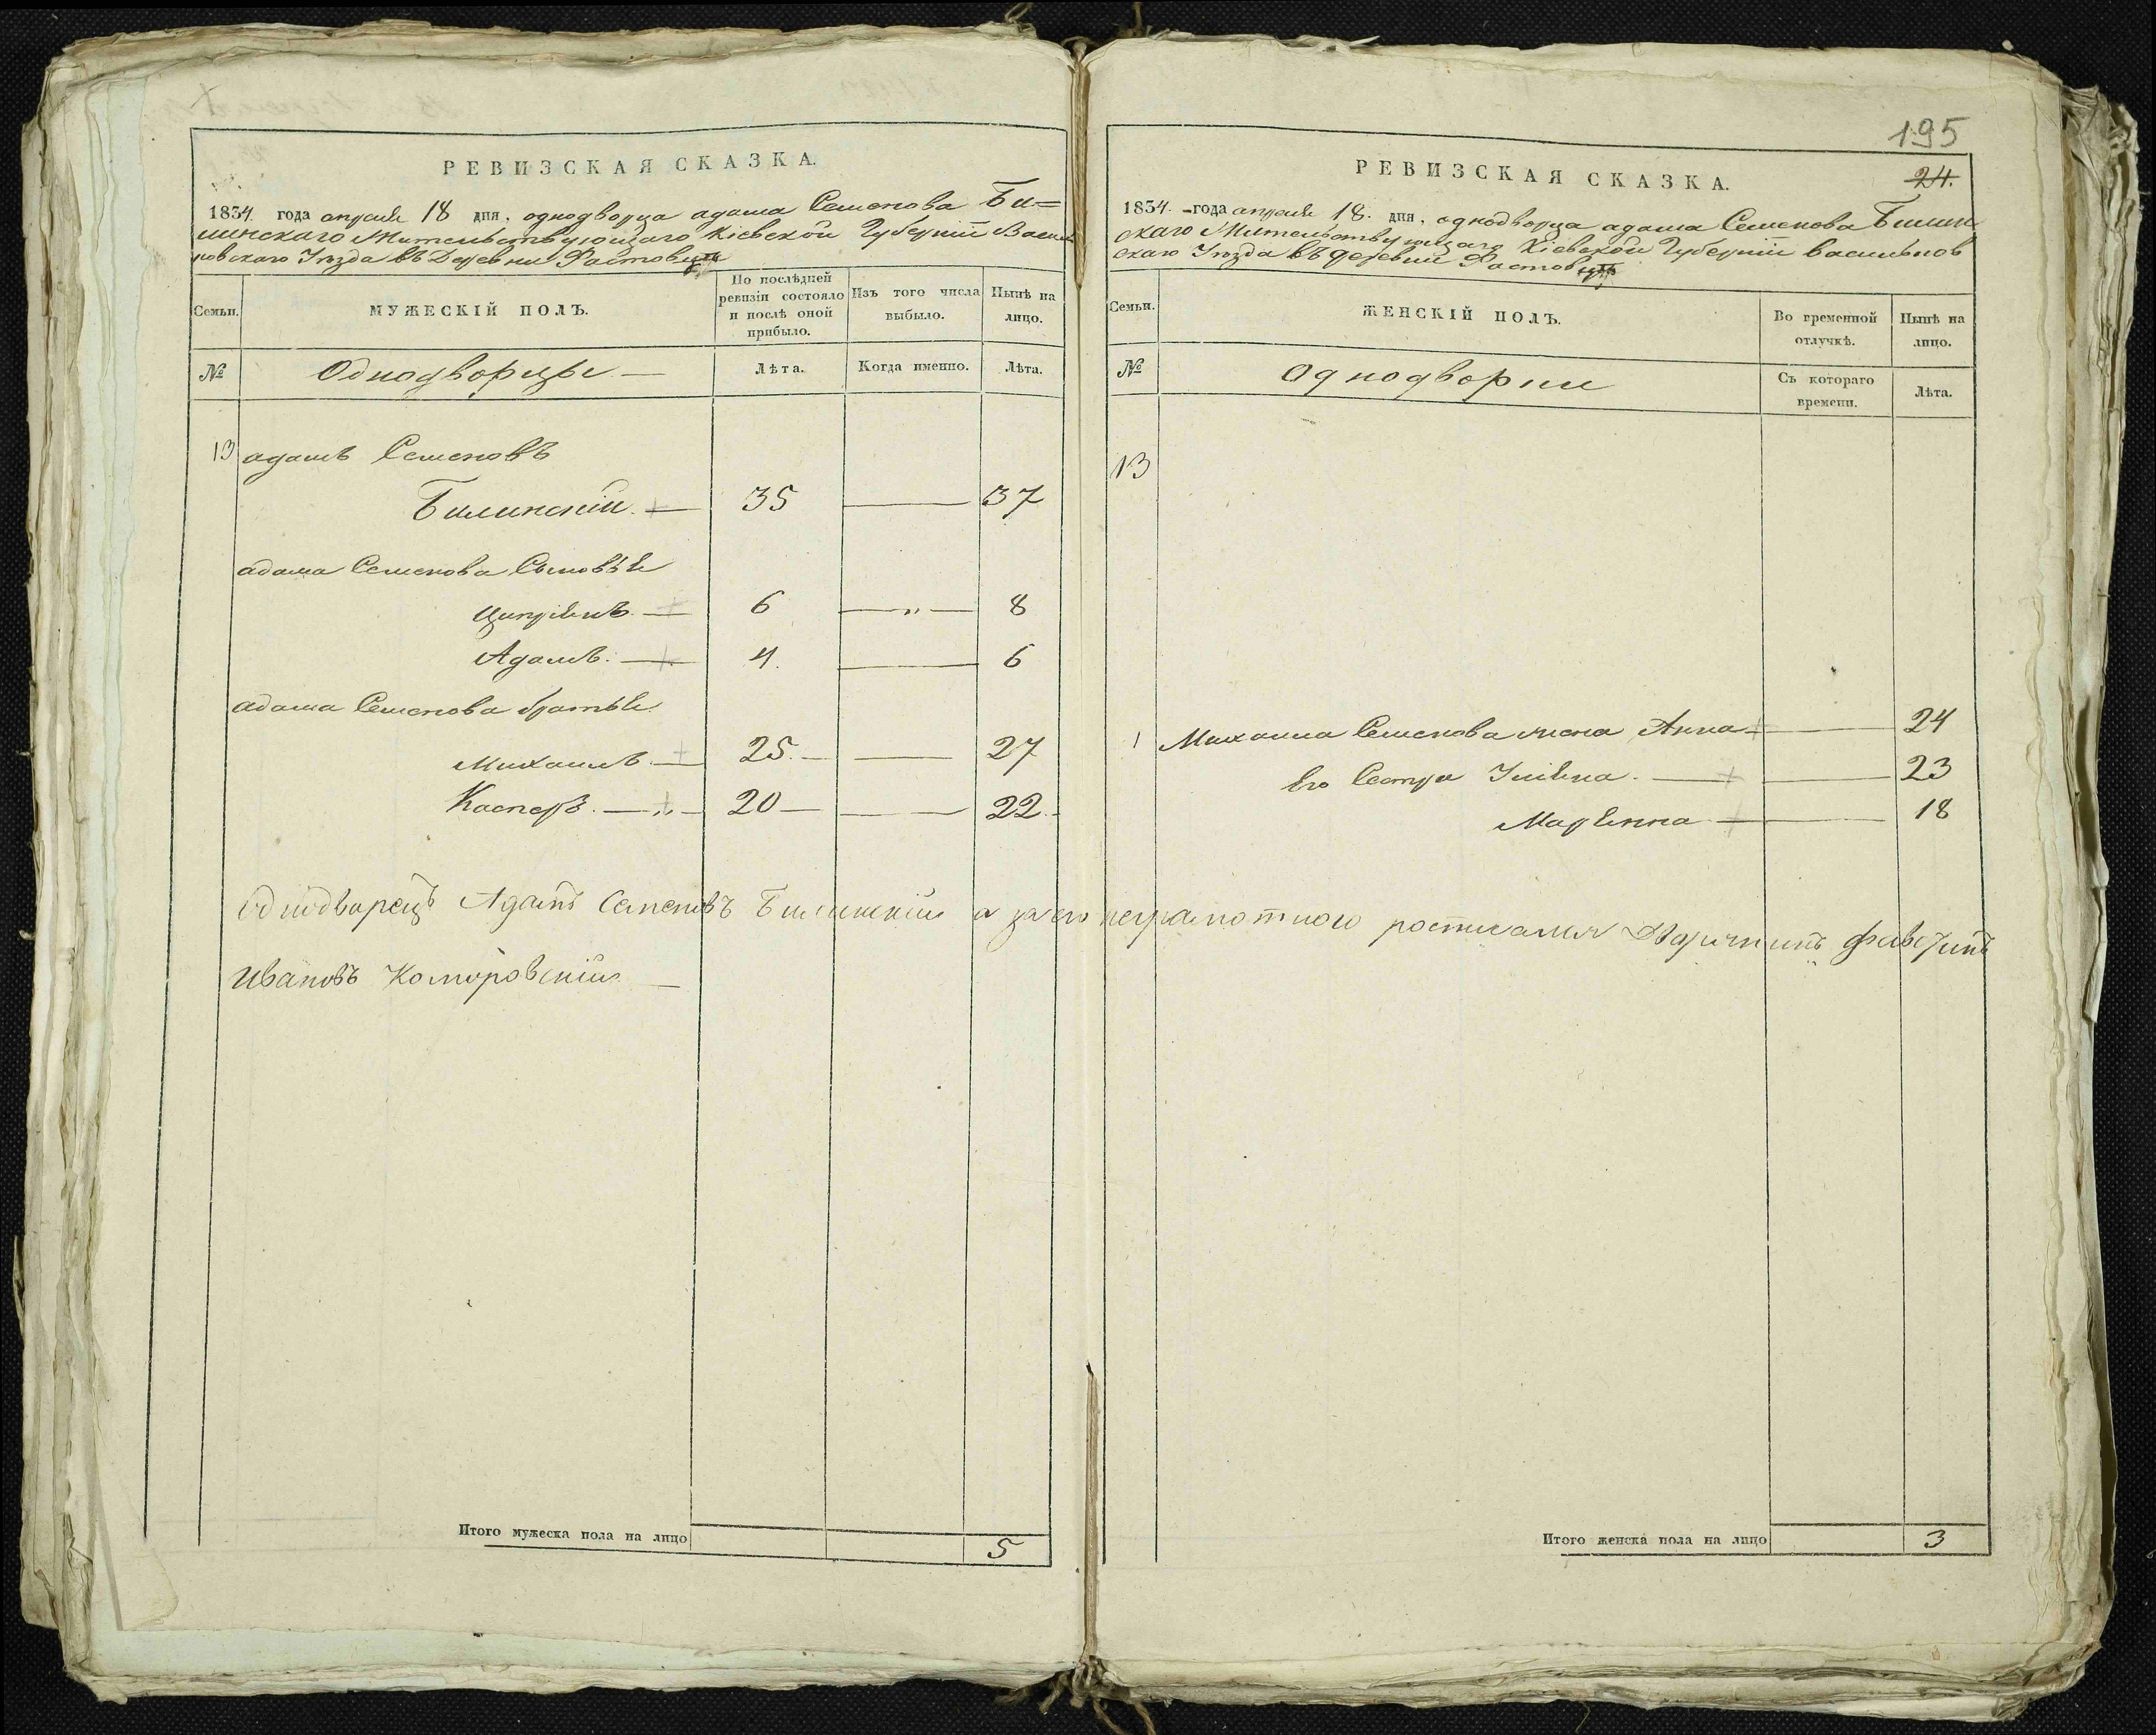 РЕВИЗСКАЯ СКАЗКА.
1834. года апреля 18 дня, однодворца адама Семенова Би=
линскаго Жительствующаго Кіевской Губерніи Василь
ковскаго Уѣзда въ Деревни
Семьи.
МУЖЕСКІЙ ПОЛЪ.
По послѣдней
ревизіи состояло
и послѣ оной
прибыло.
Изъ того числа
выбыло.
Нынѣ на
лицо.
№
Однодворцы —
Лѣта.
Когда именно.
Лѣта.
13 адамъ Семеновъ
Билинскій — 35 — 37
адама Семенова Сыновья
Ципріянъ — 6 — „ — 8
Адамъ. — 4. — 6
адама Семенова братья
Михаилъ — 25. — — 27
Касперъ. — „ — 20 — — 22.
Однодворецъ Адамъ Семеновъ Билинскій а за его неграмотного росписался Дворянинъ
Ивановъ Коморовскій —
Итого мужеска пола на лицо 5
195
24.
РЕВИЗСКАЯ СКАЗКА.
1834. года апреля 18. дня, однодворца адама Семенова Билин
скаго Жительствующаго Кіевской Губерніи Васильков
скаго Уѣзда въ деревни
Семьи.
ЖЕНСКІЙ ПОЛЪ.
Во временной
отлучкѣ.
Нынѣ на
лицо.
№
Однодворки
Съ котораго
времени.
Лѣта.
13
1 Михаила Семенова жена Анна — 24
Его Сестра Уліяна. — 23
Маріянна — 18
Итого женска пола на лицо 3